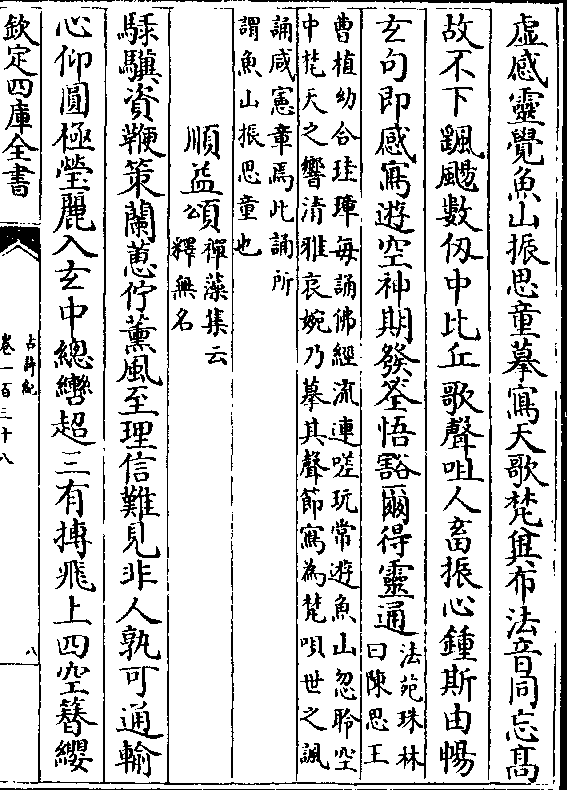 虛感靈覺魚山振思童摹寫天歌梵㒷布法音同忘髙
故不下飊飈數仭中比丘歌聲咀人畜振心鍾斯由暢
玄句即感寫遊空神期發筌悟豁爾得靈通法苑珠林
曰陳思王
曹植幼含珪璋毎誦佛經流連嗟玩常遊魚山忽聆空
中梵天之響清雅哀婉乃摹其聲節寫為梵唄世之諷
誦咸憲章焉此誦所
謂魚山振思童也
順益頌禪藻集云
釋無名
騄驥資鞭策蘭蔥佇薰風至理信難見非人孰可通輸
心仰圓極瑩麗入玄中總轡超三有搏飛上四空簪纓
欽定四庫全書
古詩紀
卷一百三十八
八